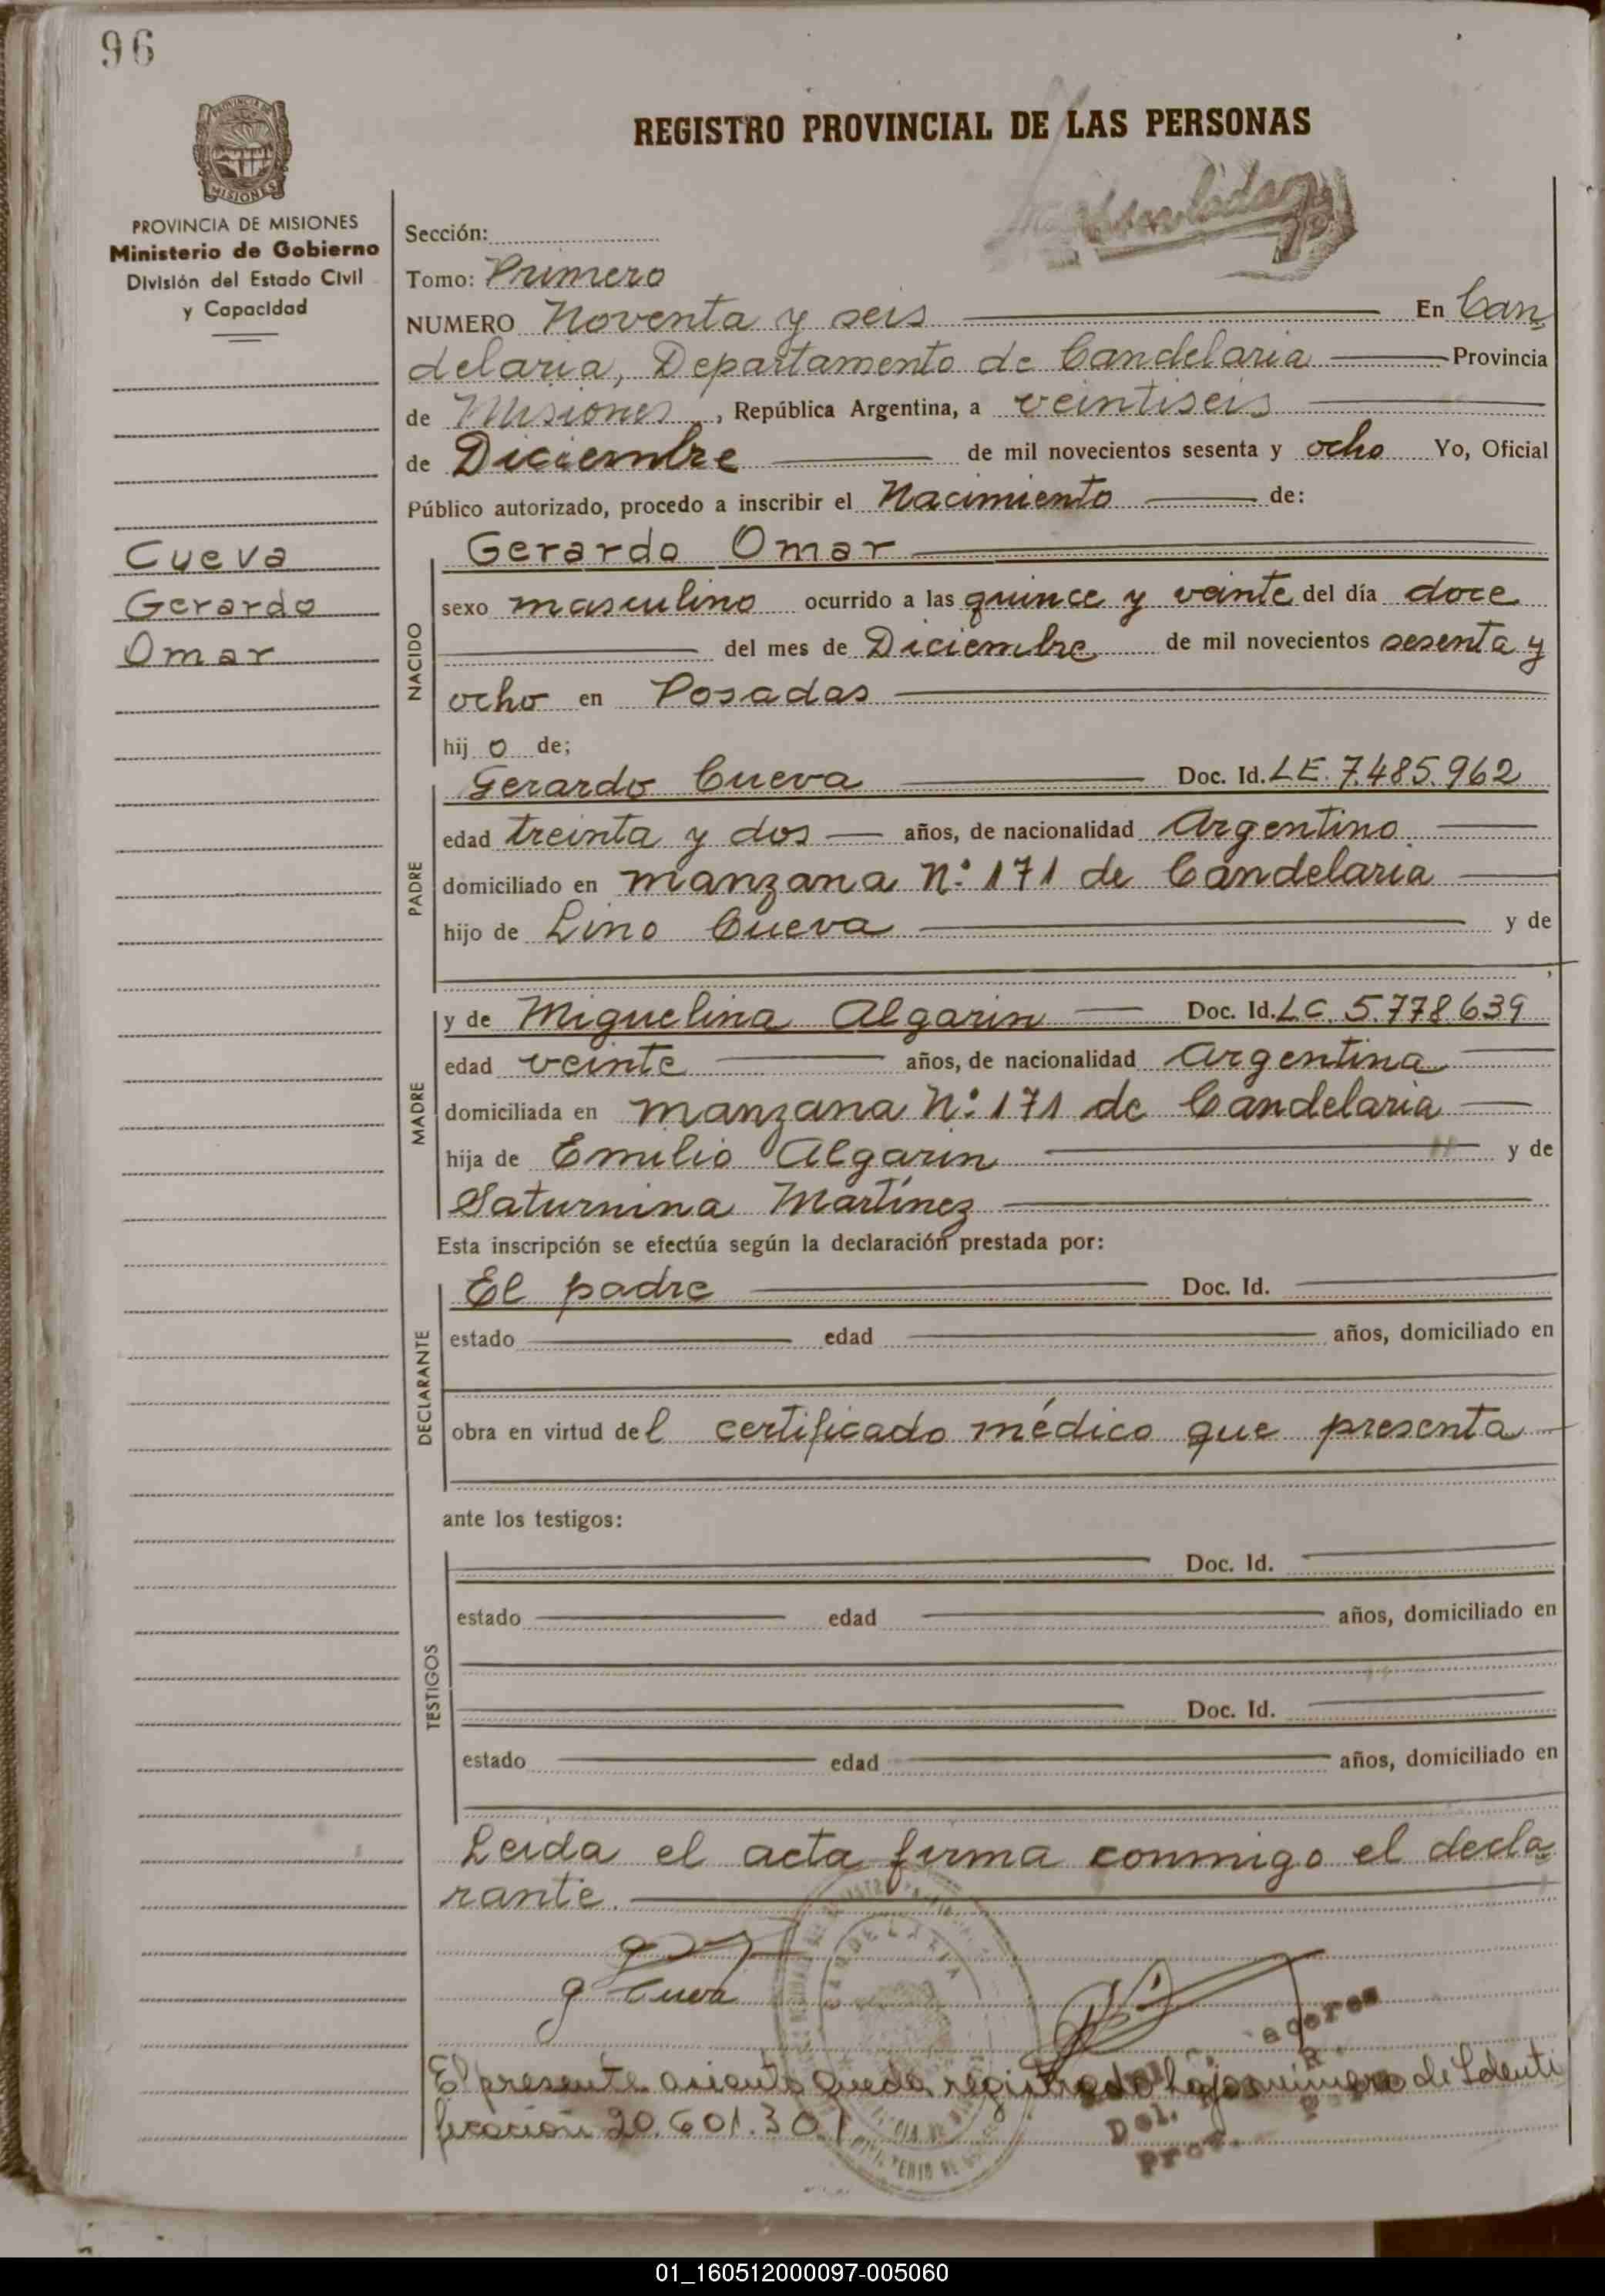 96
PROVINCIA DE MISIONES
REGISTRO PROVINCIAL DE LAS PERSONAS
PROVINCIA DE MISIONES
Ministerio de Gobierno
División del Estado Civil
y Capacidad
Sección:
Tomo: Primero
NUMERO Noventa y seis En Can
delaria, Departamento de Candelaria Provincia
de Misiones, República Argentina, a veintiseis
de Diciembre de mil novecientos sesenta y ocho Yo, Oficial
Público autorizado, procedo a inscribir el Nacimiento de:
Cueva
Gerardo
Omar
NACIDO
Gerardo Omar
sexo masculino ocurrido a las quince y veinte del día doce
del mes de Diciembre de mil novecientos sesenta y
ocho en Posadas
hij o de;
PADRE
Gerardo Cueva Doc. Id. LE. 7.485.962
edad treinta y dos años, de nacionalidad Argentino
domiciliado en manzana Nº 171 de Candelaria
hijo de Lino Cueva y de
MADRE
y de Miguelina Algarin Doc. Id. LC. 5.778.639
edad veinte años, de nacionalidad Argentina
domiciliada en manzana Nº 171 de Candelaria
hija de Emilio Algarin y de
Saturnina Martínez
Esta inscripción se efectúa según la declaración prestada por:
DECLARANTE
El padre Doc. Id.
estado edad años, domiciliado en
obra en virtud del certificado médico que presenta
ante los testigos:
TESTIGOS
Doc. Id.
estado edad años, domiciliado en
Doc. Id.
estado edad años, domiciliado en
Leida el acta firma conmigo el decla
rante.
g Cueva
CANDELARIA
El presente asiento queda registrado bajo número de Identi
ficación 20.601.301
01_160512000097-005060